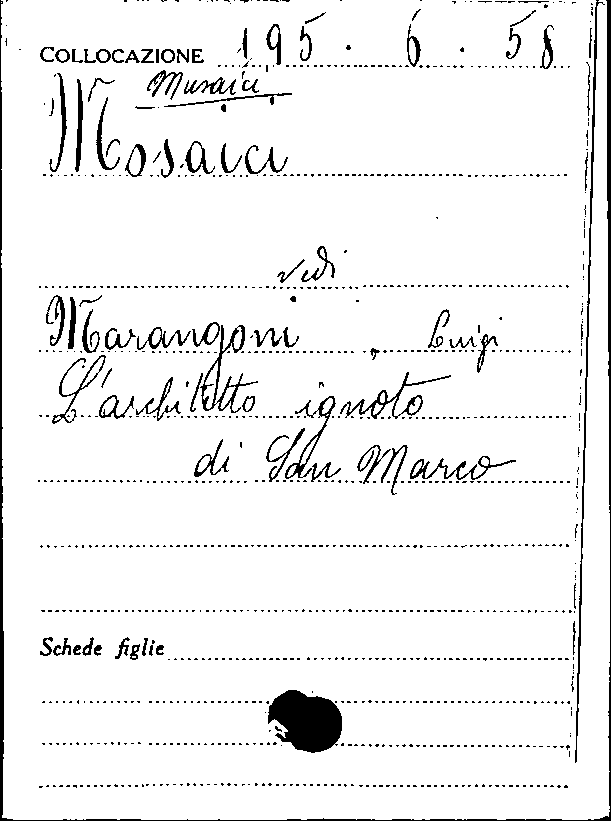 COLLOCAZIONE 195. 6. 58
Musaici
Mosaici
vedi
Marangoni, Luigi
L'architetto ignoto
di San Marco
Schede figlie